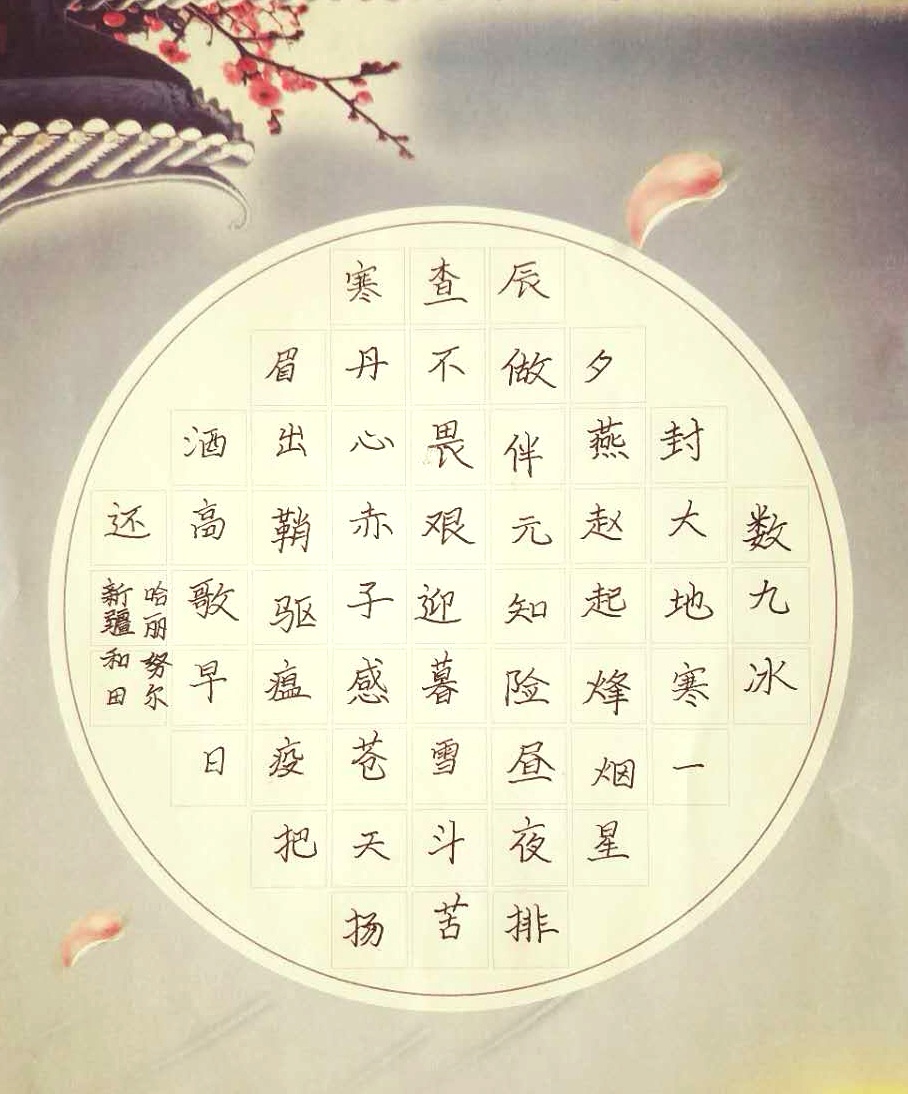 数九冰
封大地寒一
夕燕赵起烽烟星
辰做伴元知险昼夜排
查不畏艰迎暮雪斗苦
寒丹心赤子感苍天扬
眉出鞘驱瘟疫把
酒高歌早日
还
哈丽努尔
新疆和田